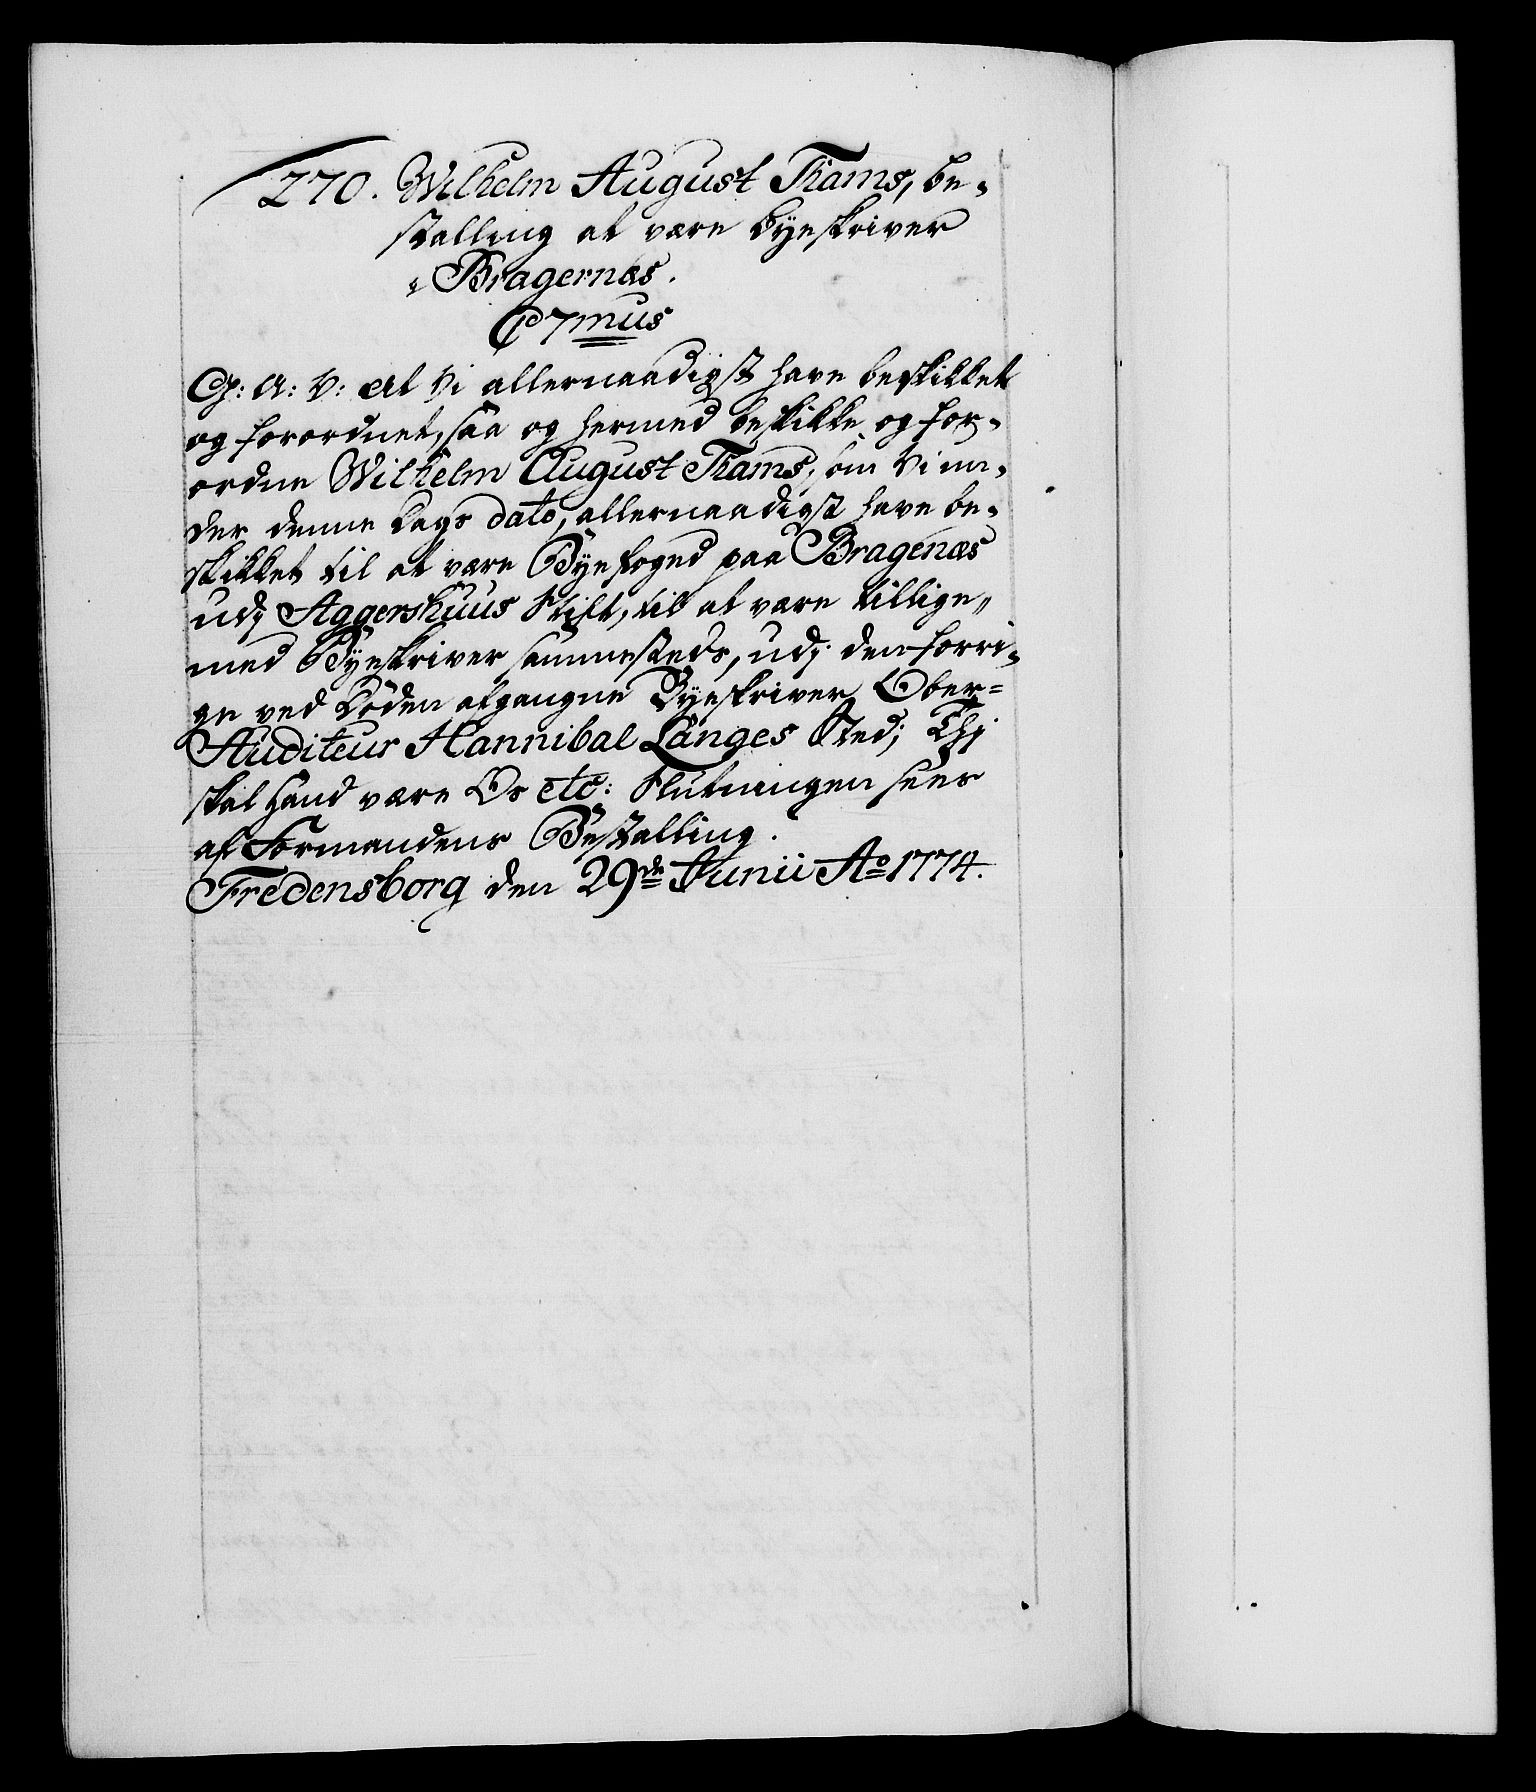 270. Wilhelm August Thams, be-
stalling at være Byeskriver
i Bragernæs.
C 7mus
G: A: V: At Vi allernaadigst have beskikket
og forordnet, saa og hermed beskikke og for-
ordne Wilhelm August Thams, som Vi un-
der denne Dags dato, allernaadigst have be-
skikket til at være Byefoged paa Bragenæs
udj Aggershuus Stift, til at være tillige-
med Byeskriver sammesteds, udj den forri-
ge ved Døden afgangne Byeskriver Ober-
Auditeur Hannibal Langes Sted; Thj
skal hand være Os etc: Slutningen sees
af Formandens Bestalling.
Fredensborg den 29de Junii Ao 1774.